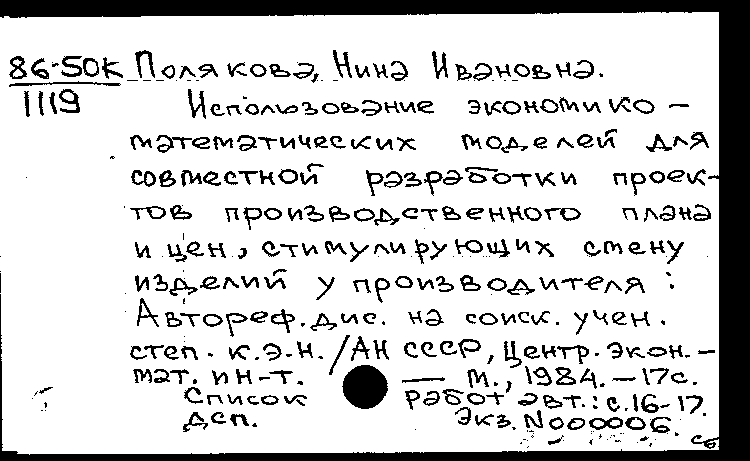 86-50К Полякова, Нина Ивановна.
1119 Использование экономико-
математических моделей для
совместной разработки проек-
тов производственного плана
и цен, стимулирующих смену
изделий у производителя :
Автореф. дис. на соиск. учен.
степ. к.э.н. /АН СССР, Центр. экон.-
мат. ин-т. — М., 1984. – 17с.
Список работ авт.: с.16-17.
Дсп. Экз. N000006.
сб